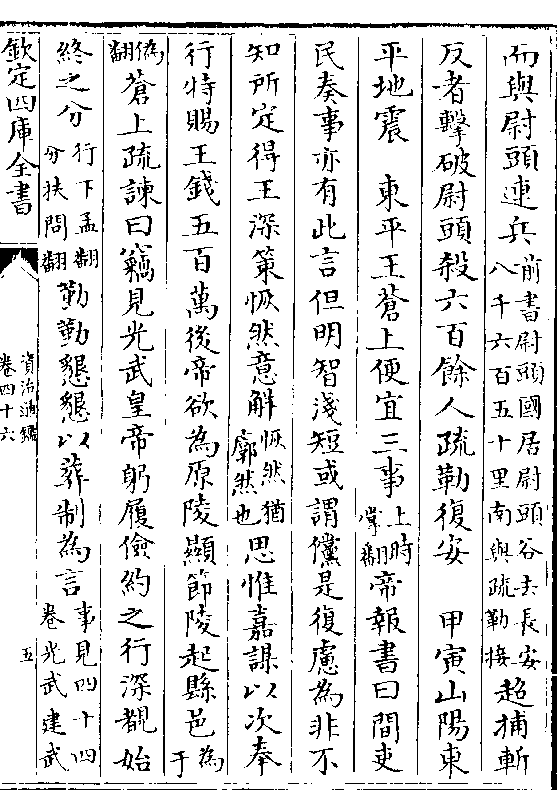 而與尉頭連兵前書尉頭國居尉頭谷去長安八千六百五十里南與疏勒接超捕斬
反者擊破尉頭殺六百餘人疏勒復安　甲寅山陽東
平地震　東平王蒼上便宜三事上時掌翻帝報書曰間吏
民奏事亦有此言但明智淺短或謂儻是復慮為非不
知所定得王深策恢然意解恢然猶廓然也思惟嘉謀以次奉
行特賜王錢五百萬後帝欲為原陵顯節陵起縣邑為于
偽翻蒼上疏諫曰竊見光武皇帝躬履儉約之行深覩始
終之分行下孟翻分扶問翻勤勤懇懇以葬制為言事見四十四卷光武建武
欽定四庫全書
資治通鑑
卷四十六
五